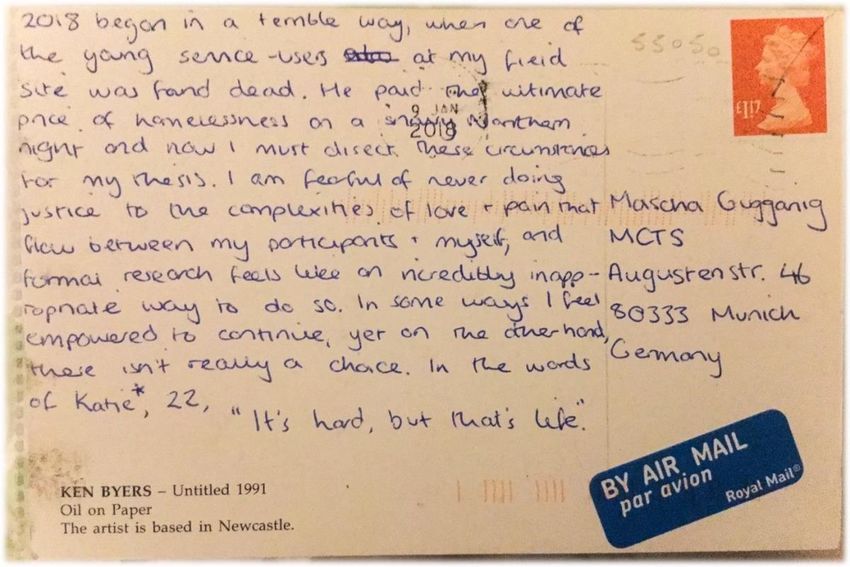 2018 began in a terrible way, when one of
the young service-users at my field
site was found dead. He paid the ultimate
price of homelessness on a snowy Northern
night and now I must disect these circumstances
for my thesis. I am fearful of never doing
justice to the complexities of love + pain that
flow between my participants + myself, and
formal research feels like an incredibly inapp-
ropriate way to do so. In some ways I feel
empowered to continue, yet on the other hand,
there isn't really a choice. In the words
of Katie*, 22, "It's hard, but that's life."
9 JAN
2018
55050
£1.17
Mascha Gugganig
MCTS
Augustenstr. 46
80333 Munich
Germany
KEN BYERS – Untitled 1991
Oil on Paper
The artist is based in Newcastle.
BY AIR MAIL
par avion
Royal Mail®